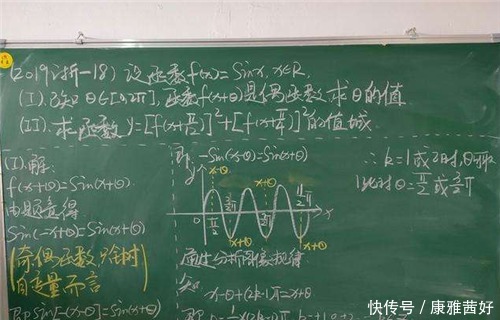 (2019浙-18) 设函数f(x)=Sinx, x∈R.
(I). 已知θ∈[0,2π], 函数f(x+θ)是偶函数 求θ的值
(II). 求函数 y=[f(x+π/12)]²+[f(x+π/4)]²的值域
(I).解:
f(x+θ)=Sin(x+θ)
由题意得
Sin(-x+θ)=Sin(x+θ)
(奇偶函数只针对
自变量而言
Sin[-(x-θ)]=Sin(x+θ)
即 -Sin(x-θ)=Sin(x+θ)
y
x-θ
x+θ
x+θ
x+θ
0
π/2
x
通过分析图像规律
x-θ+(2k-1)π=x+θ
∴ k=1或2时,
此时θ=π/2 或 3/2π
快传号/康雅茜好